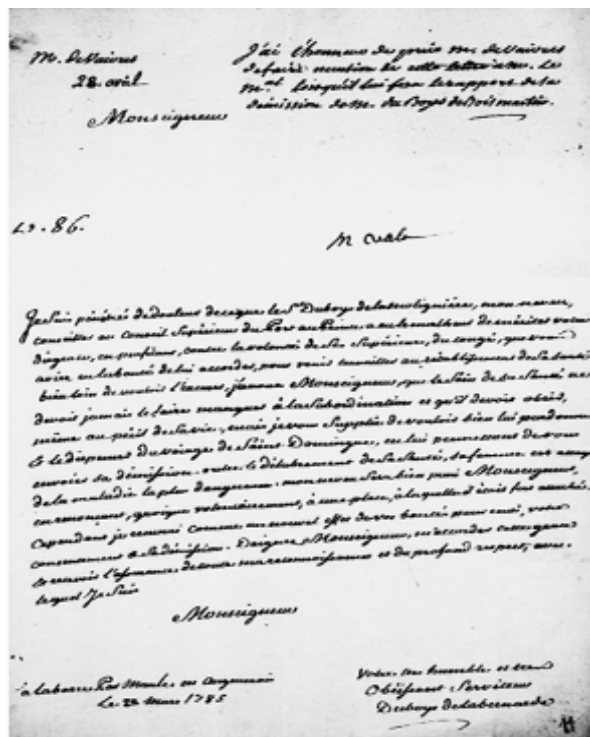 M. de Vaivres
28. avril
J'ai l'honneur de prier M. de Vaivres
de faire mention de cette lettre à M. Le
Mal lorsqu'il lui fera le rapport de la
démission de M. du Boys de Boismartin.
Monseigneur
86.
Je suis pénétré de douleur de ce que le Sr. Duboys de la
conseiller au Conseil Supérieur du Port au Prince a eu le malheur de mériter votre
contre la volonté de Ses Supérieurs, du congé, que vous
aviez eu la bonté de lui accorder, pour venir travailler au rétablissement de Sa santé
bien loin de vouloir l'excuser, j'avoue Monseigneur, que le Soin de Sa Santé ne
devoit jamais le faire manquer à la Subordination et qu'il devoit obéir,
même au péril de Sa vie, mais je vous Supplie de vouloir bien lui pardonner
et le dispenser du voiage de Saint-Domingue, en lui permettant de vous
envoier sa démission. outre le délabrement de Sa Santé, Sa femme est
de la maladie la plus dangereuse. Monseigneur,
en renonçant, quoique volontairement, à une place, à laquelle il étoit fort attaché.
Cependant je recevrai comme un nouvel effet de vos bontés pour moi, votre
consentement à Sa démission. Daignez, Monseigneur, m'accorder cette grace
et recevoir l'assurance de toute ma reconnoissance et du profond respect, avec
lequel Je Suis
Monseigneur
à labarre Par Mansle en angoumois
Le 22 Mars 1785
Votre très humble et très
Obéissant Serviteur
Duboys de Labernarde